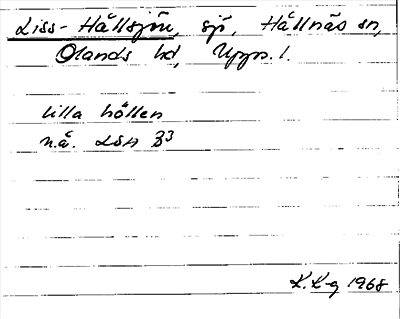 Liss-Hållsjön, sjö, Hållnäs sn,
Olands hd, Upps. l.
lilla hållen
n.å. LSA B3
K.L-g 1968